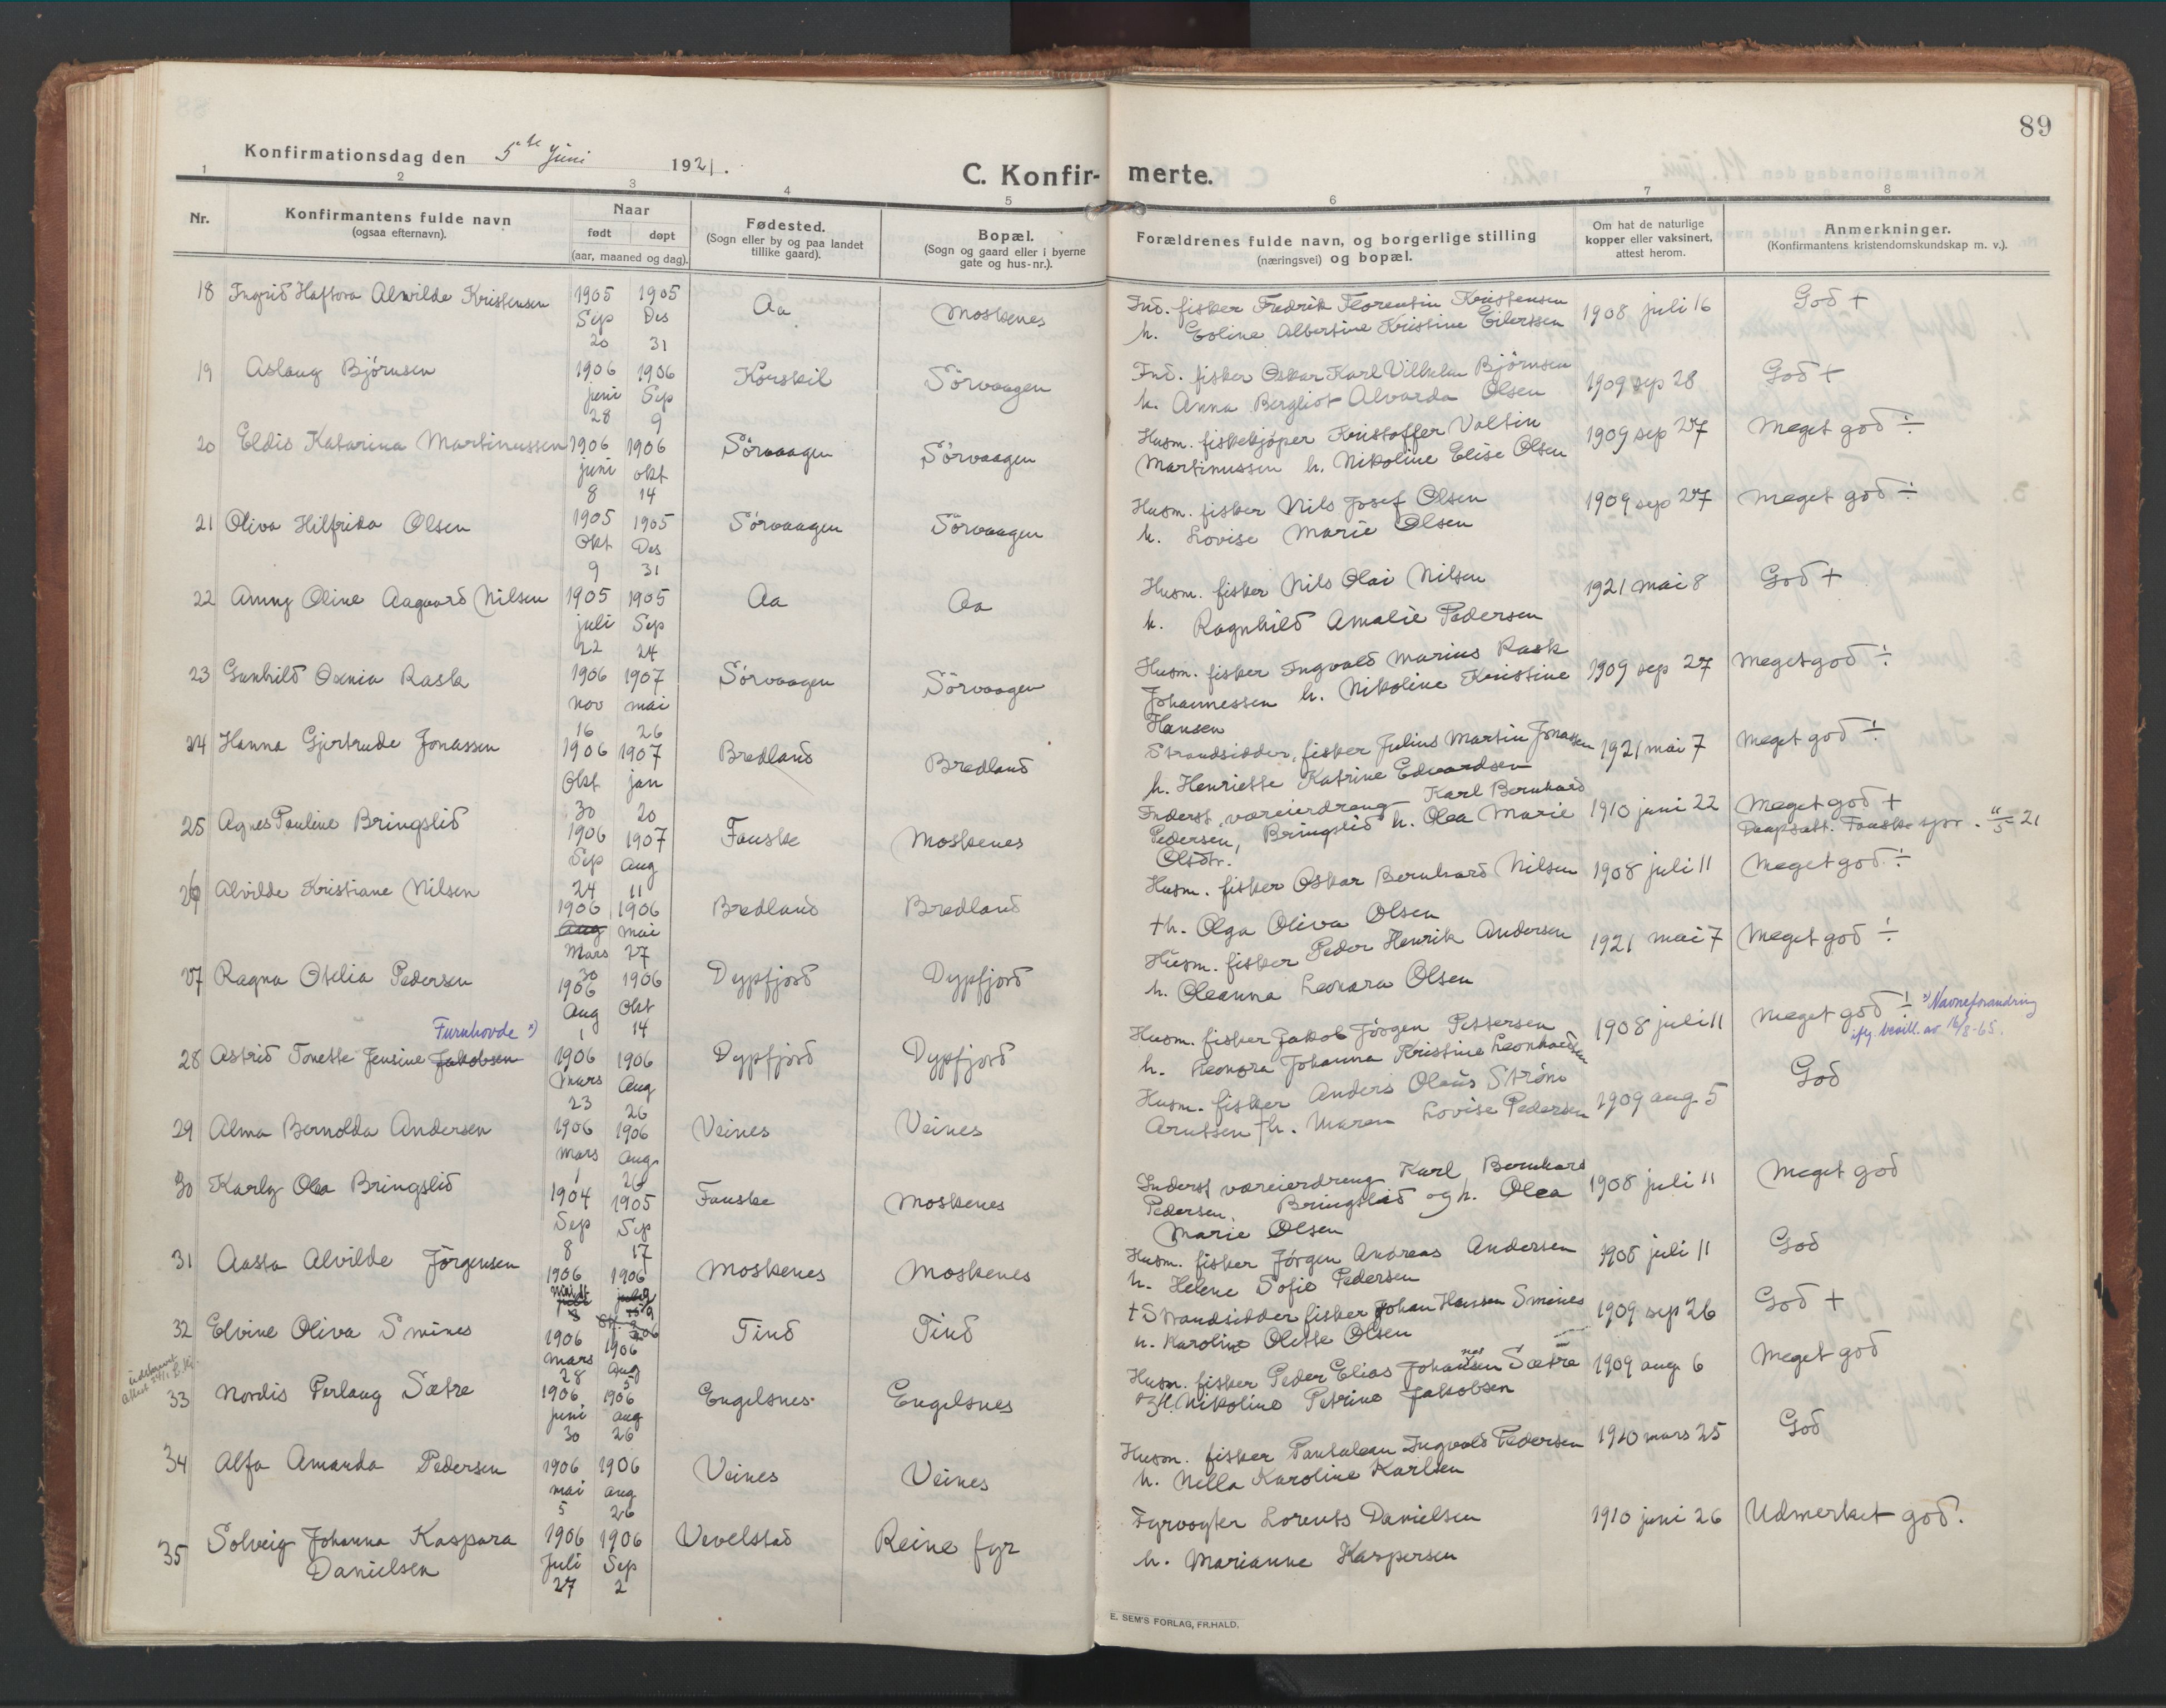 89
Konfirmationsdag den 5te juni 1921.
C. Konfir- merte.
1 2 3 4 5 6 7 8
Nr.
Konfirmantens fulde navn
(ogsaa efternavn).
Naar
født døpt
(aar, maaned og dag).
Fødested.
(Sogn eller by og paa landet
tillike gaard).
Bopæl.
(Sogn og gaard eller i byerne
gate og hus-nr.).
Forældrenes fulde navn, og borgerlige stilling
(næringsvei) og bopæl.
Om hat de naturlige
kopper eller vaksinert,
attest herom.
Anmerkninger.
(Konfirmantens kristendomskundskap m. v.).
18 Ingrid Haftora Alwilde Kristensen 1905 Sep 20 1905 Des 31 Aa Moskenes
Ind. fisker Fredrik Florentin Kristensen
h. Eoline Albertine Kristine Eilertsen
1908 juli 16 God +
19 Aslaug Bjørnsen 1906 juni 28 1906 Sep 9 Korskil Sörvaagen
Ind. fisker Oskar Karl Vilhelm Bjørnsen
h. Anna Bergliot Alvarda Olsen
1909 sep 28 God +
20 Eldis Katarina Martinussen 1906 juni 8 1906 okt 14 Sörvaagen Sörvaagen
Husm. fiskekjøper Kristoffer Valtin
Martinussen h. Nikoline Elise Olsen
1909 sep 27 Meget god ÷
21 Oliva Hilfrida Olsen 1905 Okt 9 1905 Des 31 Sörvaagen Sörvaagen
Husm. fisker Nils Josef Olsen
h. Lovise Marie Olsen
1909 sep 27 Meget god ÷
22 Anny Oline Aagaard Nilsen 1905 juli 22 1905 Sep 24 Aa Aa
Husm. fisker Nils Olai Nilsen
h. Ragnhild Amalie Pedersen
1921 mai 8 God +
23 Gunhild Oxenia Rask 1906 nov 16 1907 mai 26 Sörvaagen Sörvaagen
Husm. fisker Ingvald Marius Rask
Johannessen h. Nikoline Kristine
Hansen
1909 sep 27 Meget god ÷
24 Hanna Gjertrude Jonassen 1906 Okt 30 1907 jan 20 Bredland Bredland
Strandsidder, fisker Julius Martin Jonassen
h. Henriette Katrine Edvardsen
1921 mai 7 Meget god ÷
25 Agnes Pauline Bringslid 1906 Sep 24 1907 Aug 11 Fauske Moskenes
Inderst, væreierdreng Karl Bernhard
Pedersen, Bringslid h. Olea Marie
Olsdtr.
1910 juni 22 Meget god +
Daapsatt. Fauske spr. 11/5 21
26 Alvilde Kristiane Nilsen 1906 Aug Mars 30 1906 mai 27 Bredland Bredland
Husm. fisker Oskar Bernhard Nilsen
+h. Olga Oliva Olsen
1908 juli 11 Meget god ÷
27 Ragna Otelia Pedersen 1906 Aug 1 1906 Okt 14 Dypfjord Dypfjord
Husm. fisker Peder Henrik Andersen
h. Oleanna Leonora Olsen
1921 mai 7 Meget god ÷
Furuhovde x)
28 Astrid Tonette Jensine Jakobsen 1906 Mars 23 1906 Aug 26 Dypfjord Dypfjord
Husm. fisker Jakob Jörgen Pettersen
h. Leonora Johanna Kristine Leonhardsen
1908 juli 11 Meget god ÷ x) Navneforandring
iflg. bevill. av 16/8-65.
29 Alma Bernolda Andersen 1906 Mars 1 1906 Aug 26 Veines Veines
Husm. fisker Anders Olaus Strøm
Arntsen +h. Maren Lovise Pedersen
1909 aug 5 God
30 Karly Olea Bringslid 1904 Sep 8 1905 Sep 17 Fauske Moskenes
Inderst væreierdreng Karl Bernhard
Pedersen, Bringslid og h. Olea
Marie Olsen
1908 juli 11 Meget god
31 Aasta Alvilde Jörgensen 1906 1906 Moskenes Moskenes
Husm. fisker Jörgen Andreas Andersen
h. Helene Sofie Pedersen
1908 juli 11 God
32 Elvine Oliva Smines 1906 mars 28 1906 Aug 5 Tind Tind
+Strandsidder fisker Johan Hansen Smines
h. Karoline Olette Olsen
1909 sep 26 God +
33 Nordis Perlaug Sætre 1906 juni 30 1906 aug 26 Engelsnes Engelsnes
Husm. fisker Peder Elias Johansen Sætre
h. Nikoline Petrine Jakobsen
1909 aug 6 Meget god
34 Alfa Amanda Pedersen 1906 mai 5 1906 aug 26 Veines Veines
Husm. fisker Pantaleau Ingvald Pedersen
h. Nella Karoline Karlsen
1910 mars 25 God
35 Solveig Johanna Kaspara
Danielsen 1906 Juli 27 1906 Sep 2 Vevelstad Reine fyr
Fyrvogter Lorents Danielsen
h. Marianne Kaspersen
1910 juni 26 Udmerket god.
E. SEM'S FORLAG, FR.HALD.